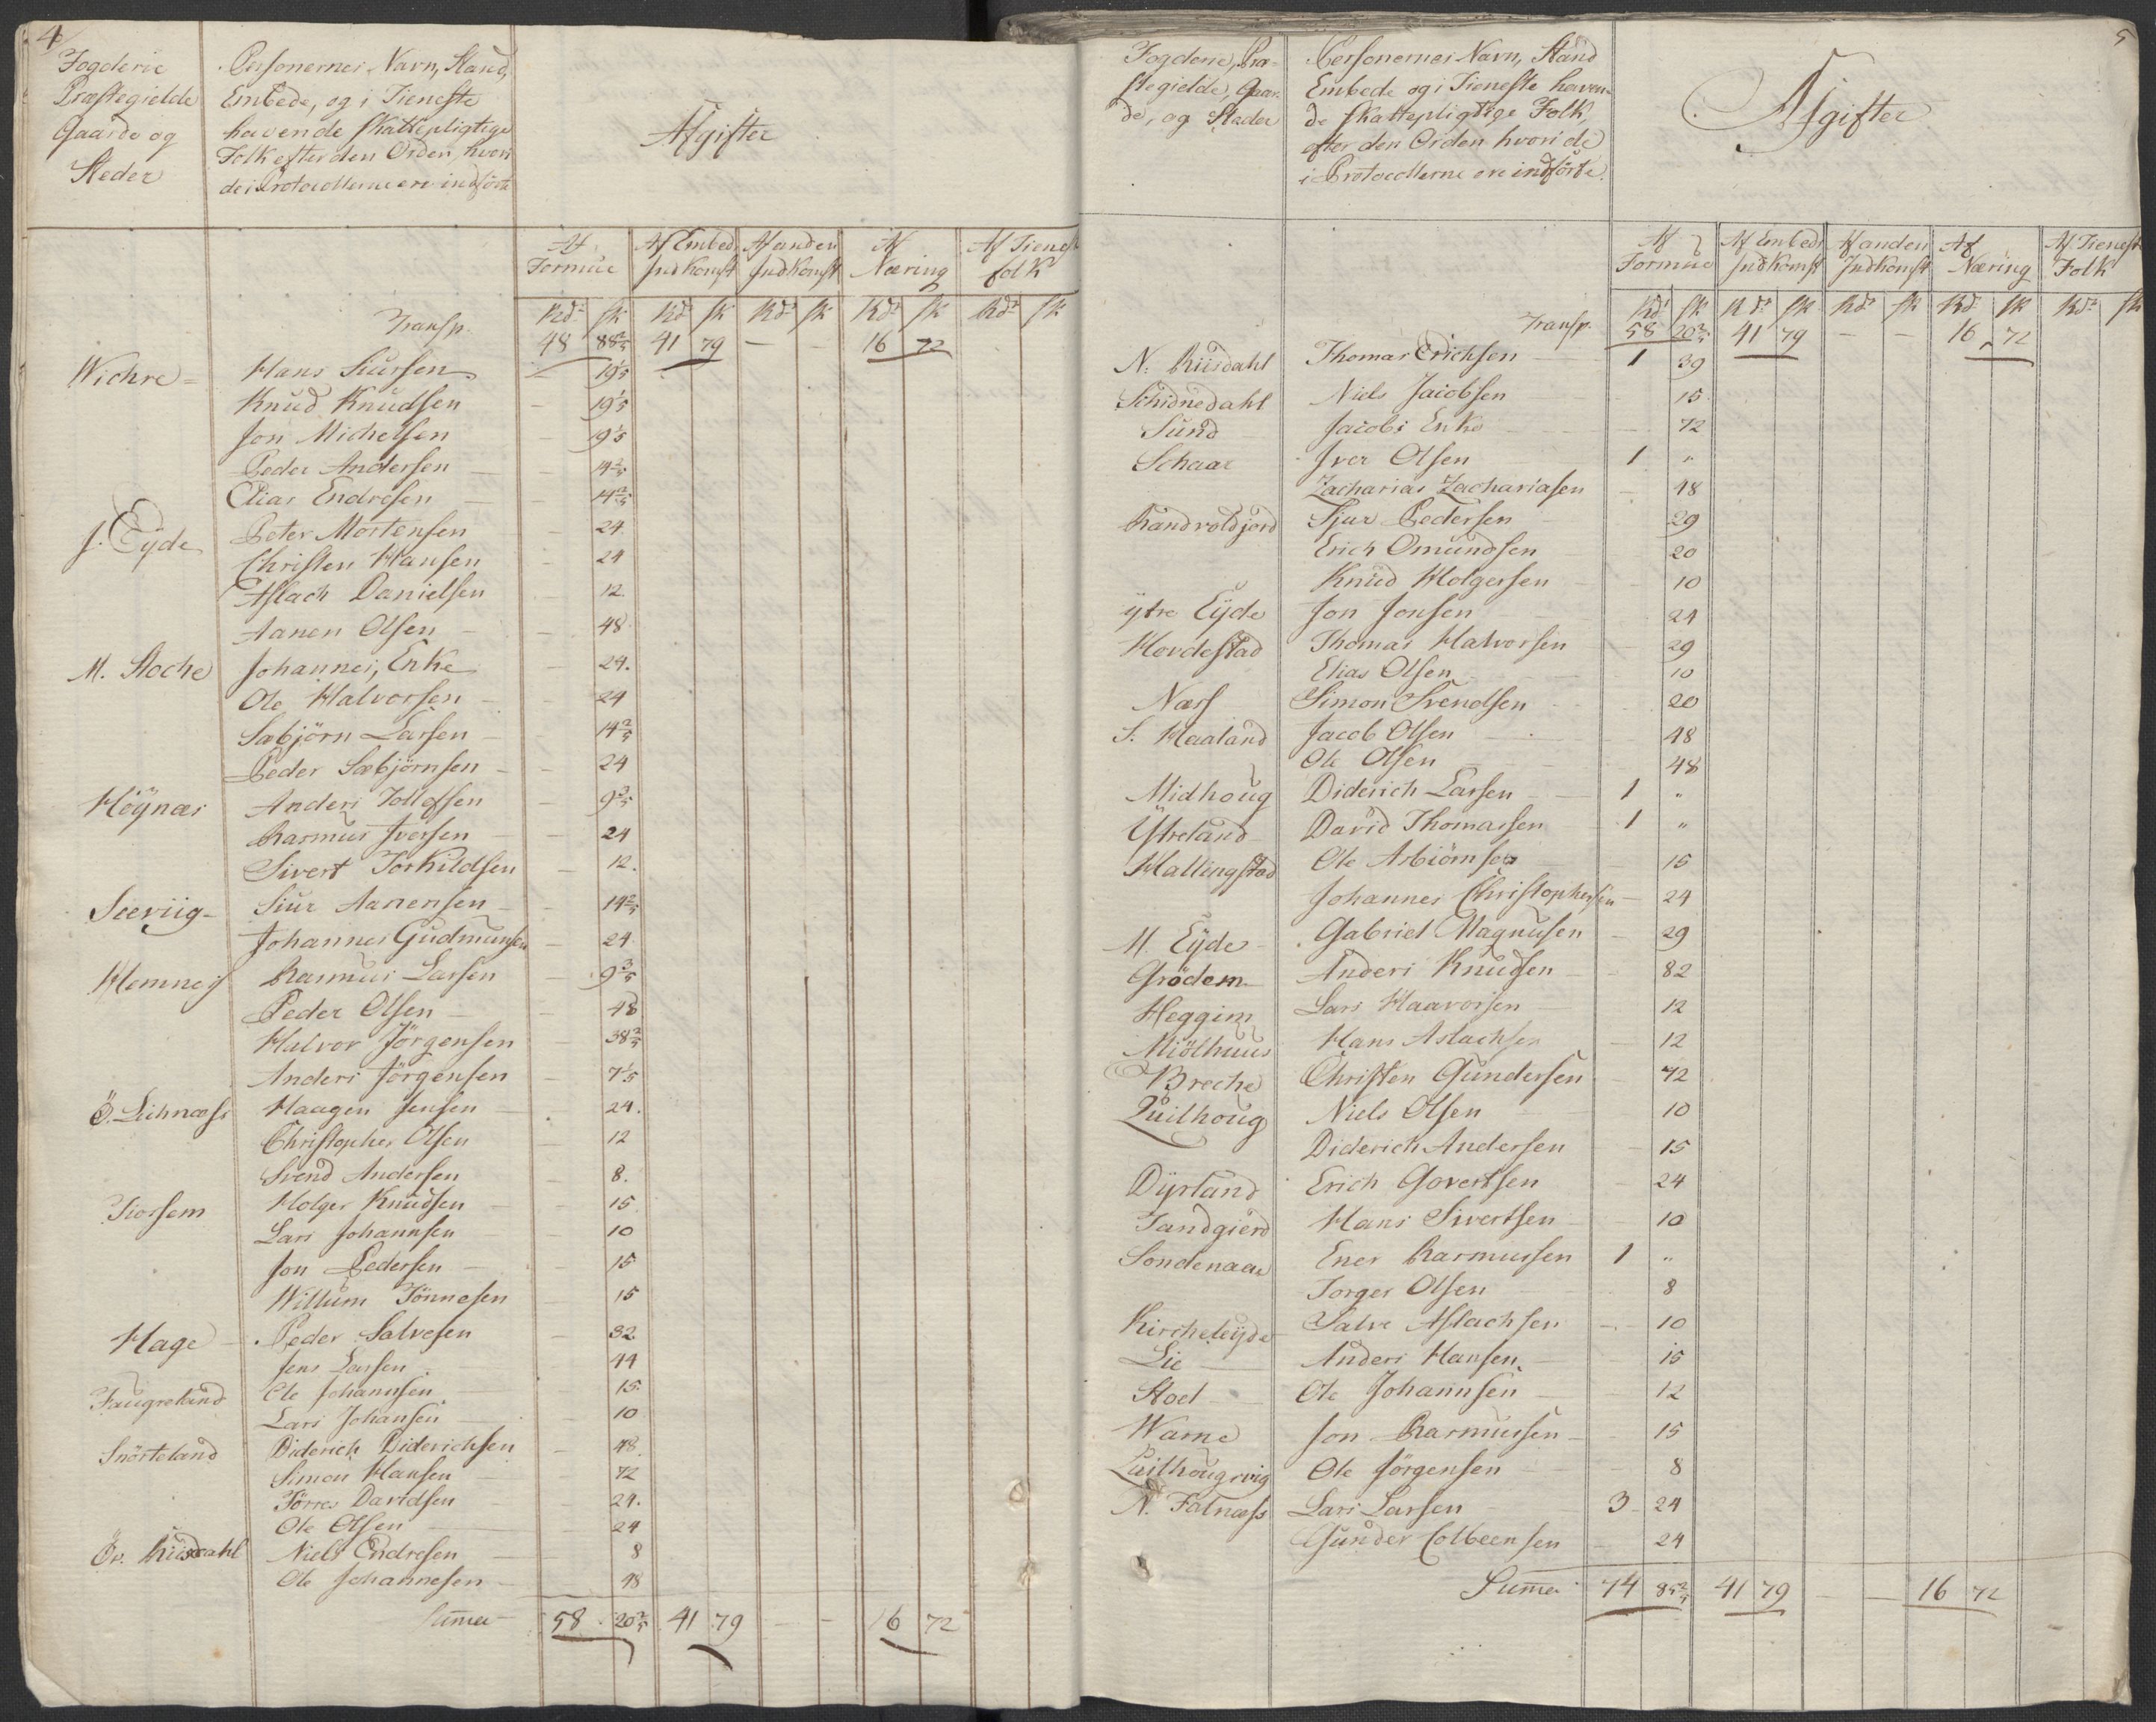 4
Fogderie
Præstegielde
Gaarde og
Steder
Personernes Navn, Stand,
Embede, og i Tieneste
havende skattepligtige
Folk efter den Orden, hvori
de i Protocollerne ere indförte
Afgifter
Af Formue | Af Embed. Indkomst | Af anden Indkomst | Af Næring | Af Tienest folk
Rdr sk | Rdr sk | Rdr sk | Rdr sk | Rdr sk
Transp. 48 88 2/5 | 41 79 | — — | 16 72
Wichre = Hans Siursen — 19 1/5
Knud Knudsen — 19 1/5
Jon Michelsen — 19 1/5
Peder Andersen — 14 2/5
Elias Endresen — 14 2/5
J. Eyde Peter Mortensen — 24
Christen Hansen — 24
Aslach Danielsen — 12
Aanen Olsen — 48
M. Stoche Johannes, Enke — 24.
Ole Halvorsen — 24
Sæbjörn Larsen — 14 2/5
Peder Sæbjörnsen — 24
Höynæs Anders Tollefsen — 9 3/5
Rasmus Iversen — 24
Sivert Torkildsen — 12.
Seeviig — Siur Aanensen — 14 2/5
Johannes Gudmunsen — 24
Hemnes Rasmus Larsen — 9 3/5
Peder Olsen — 48
Halvor Jörgensen — 38 2/5
Anders Jörgensen — 7 1/5
Ö. Lichnæss Haagen Jensen — 24.
Christopher Olsen — 12
Svend Andersen — 8.
Tiorsem Holger Knudsen — 15
Lars Johannsen — 10
Jon Pedersen — 15
Willum Tönnesen — 15
Hage — Peder Salvesen — 32
Jens Larsen — 44
Faugreland Ole Johannsen — 15
Lars Johansen — 10
Snörteland Diderich Diderichsen — 48.
Simon Hansen — 72
Törres Davidsen — 24.
Ole Olsen — 24
Öv. Riisdahl Niels Endresen — 8
Ole Johannesen — 48
Summa — 58 20 2/5 | 41 79 | — — | 16 72
5
Fogderie, Præ-
stegielde, Gaar-
de, og Steder
Personernes Navn, Stand
Embede og i Tieneste haven-
de skattepligtige Folk,
efter den Orden hvori de
i Protocollerne ere indförte.
Afgifter
Af Formue | Af Embeds Indkomst | Af anden Indkomst | Af Næring | Af Tienest Folk
Rdr sk | Rdr sk | Rdr sk | Rd sk | Rdr sk
Transp. 58 20 2/5 | 41 79 | — — | 16 72
N. Riisdahl Thomas Erichsen — 1 39
Schidnedahl Niels Jacobsen — 15
Sund Jacobs Enke — 72
Schaar Iver Olsen 1 "
Zacharias Zachariasen — 48
Randvoldjord Sjur Pedersen — 29
Erich Omundsen 20
Knud Holgersen — 10
ytre Eyde Jon Jonsen — 24
Hovdestad Thomas Halvorsen — 29
Elias Olsen — 10
Næss Simon Svendsen — 20
S. Haaland Jacob Olsen — 48
Ole Olsen — 48
Midhoug Diderich Larsen — 1 "
Ytreland David Thomassen 1 "
Hallingstad Ole Asbiörnsen — 15
Johannes Christophersen — 24
M. Eyde — Gabriel Magnusen — 29
Grödem — Anders Knudsen — 82
Heggim Lars Haavorsen — 12
Miölhuus Hans Aslachsen — 12
Breche Christen Gundersen — 72
Quilhoug Niels Olsen — 10
Diderich Andersen — 15
Dyrland Erich Govertsen — 24
Tandgierd Hans Sivertsen — 10
Söndenaae Ener Rasmussen 1 "
Torger Olsen — 8
Kircheleyde Salve Aslachsen — 10
Lie — Anders Hansen — 15
Stoel — Ole Johannsen — 12
Warne Jon Rasmussen — 15
Quilhougviig Ole Jörgensen — 8
N. Falnæss Lars Larsen — 3 24
Gunder Colbeensen — 24
Summa 74 85 2/5 | 41 79 | — — | 16 72